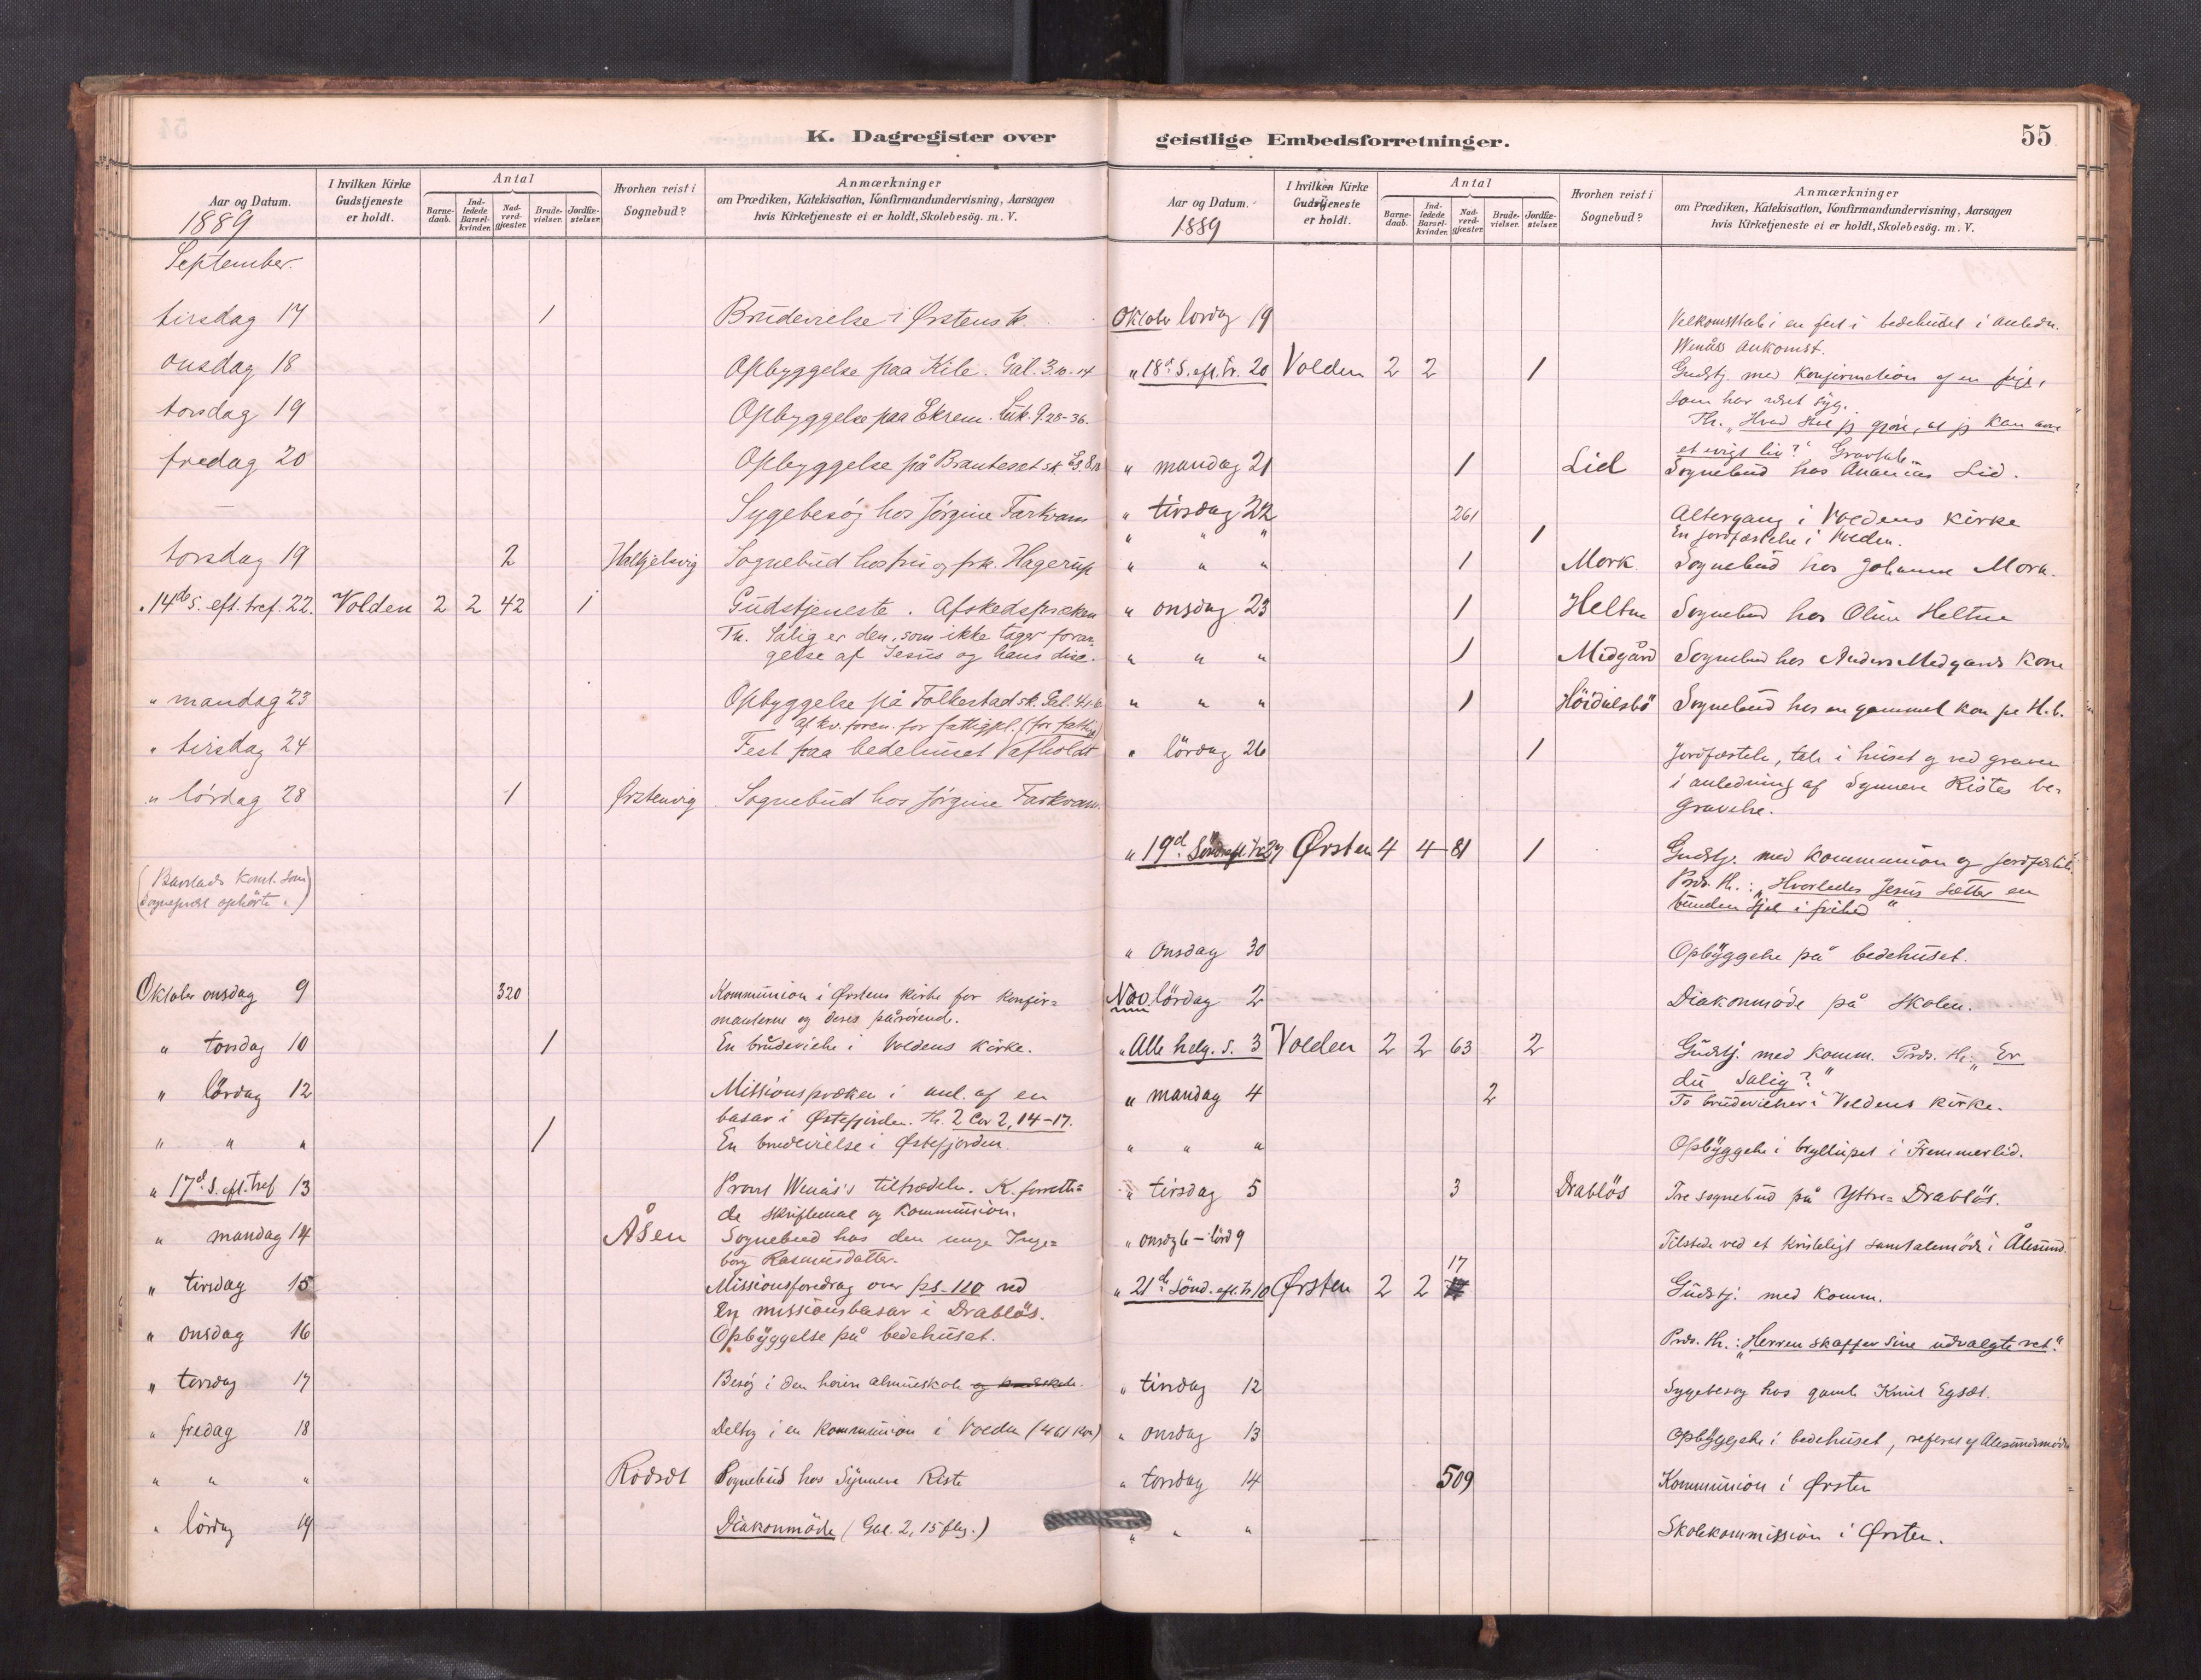 K. Dagregister over
Aar og Datum.
1889
I hvilken Kirke Gudstjeneste er holdt.
Antal
Barne-daab.
Ind-ledede Barsel-kvinder.
Nad-verd-gjæster.
Brude-vielser.
Jordfæ-stelser.
Hvorhen reist i Sognebud?
Anmærkninger
om Prædiken, Katekisation, Konfirmandundervisning, Aarsagen
hvis Kirketjeneste ei er holdt, Skolebesög. m. V.
September.
tirsdag 17 1 Brudevielse i Ørstens k.
onsdag 18 Opbyggelse paa Kile. Gal. 3 10-14
torsdag 19 Opbyggelse paa Ekrem. Luk. 9 28-36.
fredag 20 Opbyggelse på Brauteset sk.
— Sygebesøg hos Jørgine Farkvam
torsdag 19 2 Halkjelsvig Sognebud hos fru og frk. Hagerup
" 14de s. eft. tref. 22. Volden 2 2 42 1 Gudstjeneste. Afskedspræken
Th. Salig er den, som ikke tager forar-
gelse af Jesus og hans disc.
" mandag 23 Opbyggelse på Folkestad sk. Gal. 4
af kv. foren. for fattigpl. (for fattige)
" tirsdag 24 Fest paa bedehuset afholdt
" lördag 28 1 Ørstenvig Sognebud hos Jörgine Farkvam.
( konst. som
Sogneprest ophörte.)
Oktober onsdag 9 320 Kommunion i Ørstens kirke for konfir=
manterne og deres pårørende.
" torsdag 10 1 En brudevielse i Voldens kirke.
" lördag 12 Missionspræken i anl. af en
basar i Østefjorden. Th. 2 Cor 2, 14-17.
" " " 1 En brudevielse i Østefjorden.
" 17d. S. eft. tref 13 Provst Wenås's tiltrædelse. K. forrett=
de skriftemaal og kommunion.
" mandag 14 Åsen Sognebud hos den unge Inge=
borg Rasmusdatter.
" tirsdag 15 Missionsforedrag over ps. 110 ved
En missionsbasar i Drabløs.
" onsdag 16 Opbyggelse på bedehuset.
" torsdag 17 Besög i den höiere almueskole
" fredag 18 Deltog i en kommunion i Volden (461 kom)
" " " Rödsæt Sognebud hos Synneve Riste
" lördag 19 Diakonmöde (Gal. 2, 15 flg.)
geistlige Embedsforretninger.
55
Aar og Datum.
1889
I hvilken Kirke Gudstjeneste er holdt.
Antal
Barne-daab.
Ind-ledede Barsel-kvinder.
Nad-verd-gjæster.
Brude-vielser.
Jordfæ-stelser.
Hvorhen reist i Sognebud?
Anmærkninger
om Prædiken, Katekisation, Konfirmandundervisning, Aarsagen
hvis Kirketjeneste ei er holdt, Skolebesög. m. V.
Oktober lördag 19 Velkomsttale i en fest i bedehuset i anledn.
Wenåss ankomst.
" 18d. S. eft. tr. 20 Volden 2 2 1 Gudstj. med konfirmation af en pige,
som har været syg.
Th. "Hvad skal jeg gjøre, at jeg kan arve
et evigt liv?" Gravtale
" mandag 21 1 Lid Sognebud hos Ananias Lid.
" tirsdag 22 261 Altergang i Voldens kirke
" " " 1 En jordfæstelse i Volden.
" " " 1 Mork Sognebud hos Johanne Mork.
" onsdag 23 1 Heltne Sognebud hos Oline Heltne
" " " 1 Midgård Sognebud hos Anders Medgards kone
" " " 1 Höidalsbö Sognebud hos en gammel kone på H.b.
" lördag 26 1 Jordfæstelse, tale i huset og ved graven
i anledning af Synneve Ristes be-
gravelse.
" 19d. Sönd. eft. tr. 27 Ørsten 4 4 81 1 Gudstj. med kommunion og jordfæstelse.
Præd. th.: "Hvorledes Jesus sætter en
bunden sjel i frihed"
" onsdag 30 Opbyggelse på bedehuset.
Nov. lördag 2 Diakonmöde på skolen.
" Alle helg. s. 3 Volden 2 2 63 2 Gudstj. med komm. Præd. th.: "Er
du salig?"
" mandag 4 2 To brudevielser i Voldens kirke.
" " " Opbyggelse i bryllupet i Fremmerlid.
" tirsdag 5 3 Drablös Tre sognebud på Yttre= Drablös.
" onsdg 6 – lörd 9 Tilstede ved et kristeligt samtalemöde i Ålesund.
17
" 21de sönd. eft. tr 10 Ørsten 2 2 Gudstj. med komm.
Præd. th.: "Herren skaffer sine udvalgte ret."
" tirsdag 12 Sygebesøg hos gamle Knut Egsæt.
" onsdag 13 Opbyggelse i bedehuset, referat af Ålesundsmødet
" torsdag 14 509 Kommunion i Ørsten
" " " Skolekommission i Ørsten.